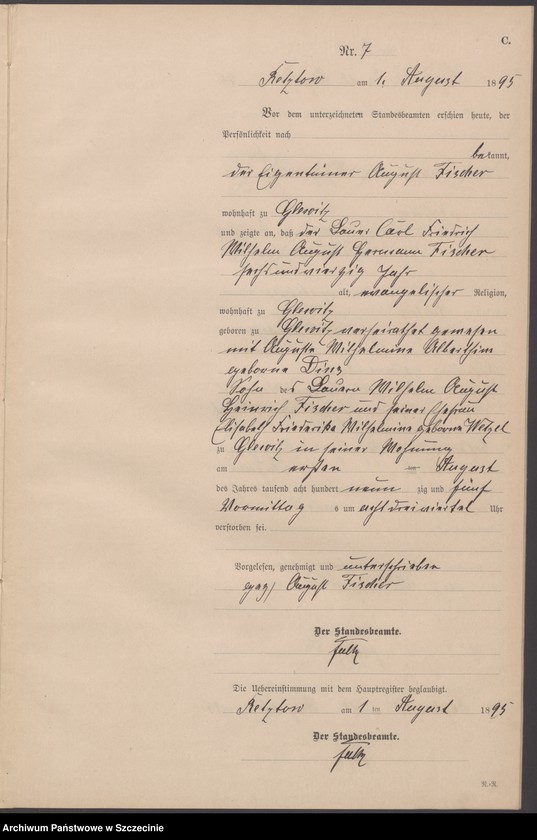 C.
Nr. 7
Retztow am 1. August 1895
Vor dem unterzeichneten Standesbeamten erschien heute, der
Persönlichkeit nach
bekannt,
der Eigentümer August Fischer
wohnhaft zu Glewitz
und zeigte an, daß der Bauer Carl Friedrich
Wilhelm August Hermann Fischer
sechsundvierzig Jahr
alt, evangelischer Religion,
wohnhaft zu Glewitz
geboren zu Glewitz verheirathet gewesen
mit Auguste Wilhelmine Albertine
geborne
Sohn des Bauern Wilhelm August
Heinrich Fischer und seiner Ehefrau
Elisabeth Friederike Wilhelmine geborne Witzel
zu Glewitz in seiner Wohnung
am ersten August
des Jahres tausend acht hundert neunzig und fünf
Vormittags um acht dreiviertel Uhr
verstorben sei.
Vorgelesen, genehmigt und unterschrieben
gez) August Fischer
Der Standesbeamte.
Falk
Die Uebereinstimmung mit dem Hauptregister beglaubigt.
Retztow am 1 ten August 1895
Der Standesbeamte.
Falk
N.-R.
Archiwum Państwowe w Szczecinie